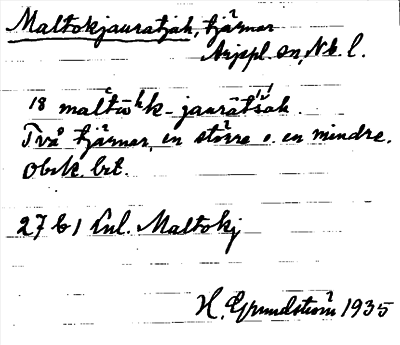 Maltokjauratjah, tjärnar
Arjepl. sn, Nb. l.
18 maltŭk̄k-jaurātšah.
Två tjärnar, en större o. en mindre.
Obek. brt.
27 b 1 Inl. Maltokj
H. Grundström 1935